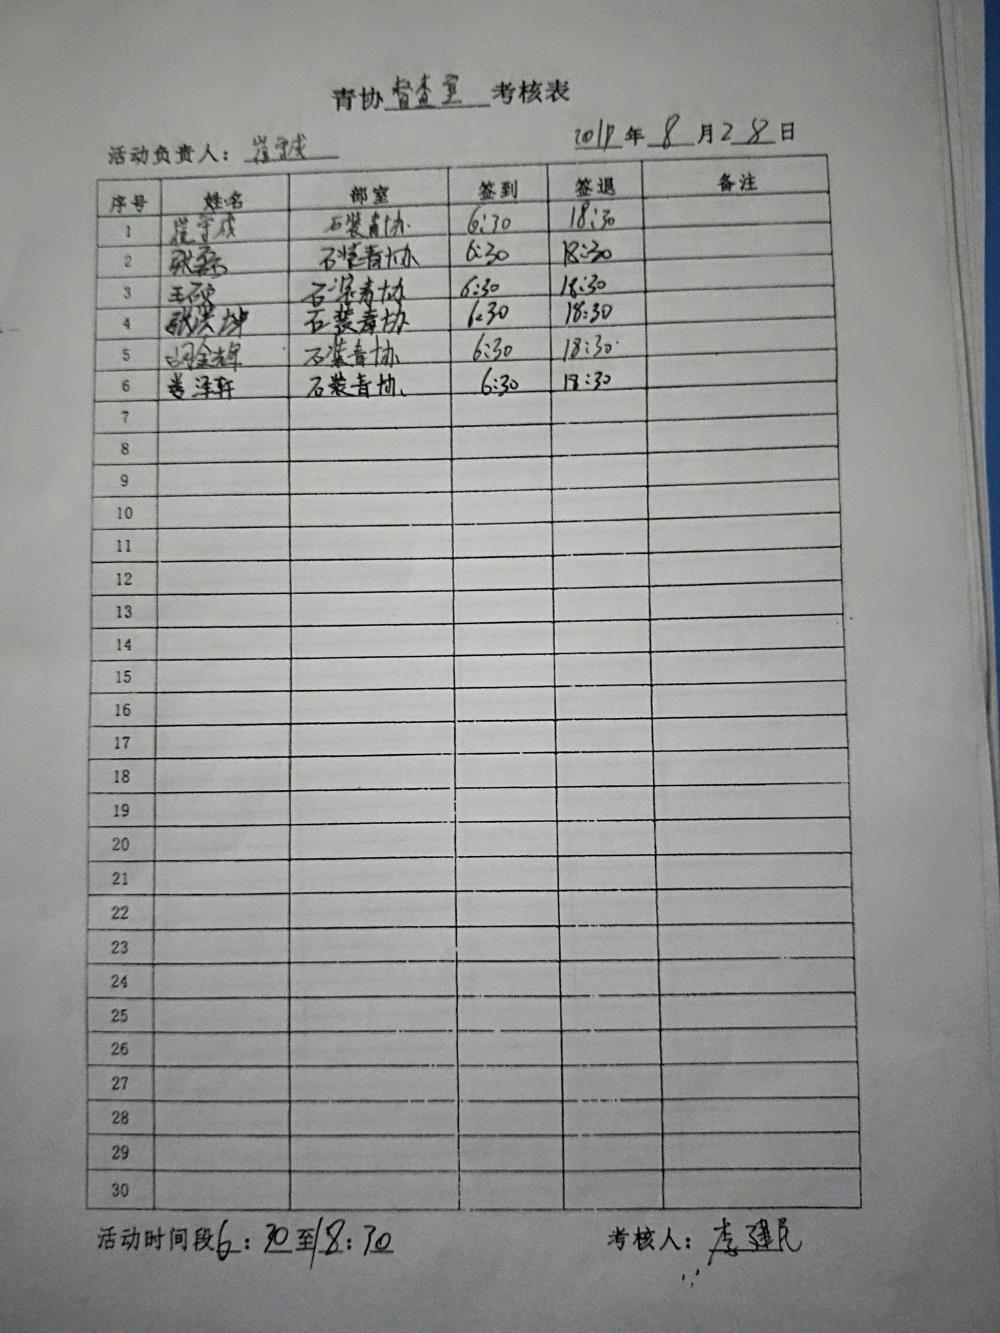 青协督查室考核表
活动负责人：崔宇成 2017年8月28日
序号 姓名 部室 签到 签退 备注
1 崔宇成 石装青协 6:30 18:30
2 张磊 石装青协 6:30 18:30
3 王硕 石装青协 6:30 18:30
4 张洪坤 石装青协 6:30 18:30
5 金辉 石装青协 6:30 18:30
6 娄泽轩 石装青协 6:30 18:30
7
8
9
10
11
12
13
14
15
16
17
18
19
20
21
22
23
24
25
26
27
28
29
30
活动时间段6:30至18:30 考核人：李建民